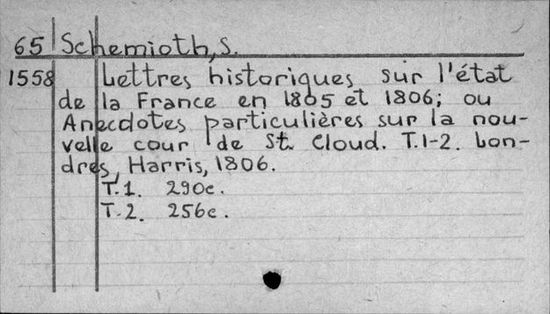 65 Schemioth, S.
1558 Lettres historiques sur l'état
de la France en 1805 et 1806; ou
Anecdotes particulières sur la nou-
velle cour de St. Cloud. T.1-2. Lon-
dres, Harris, 1806.
T.1. 290c.
T.2. 256c.